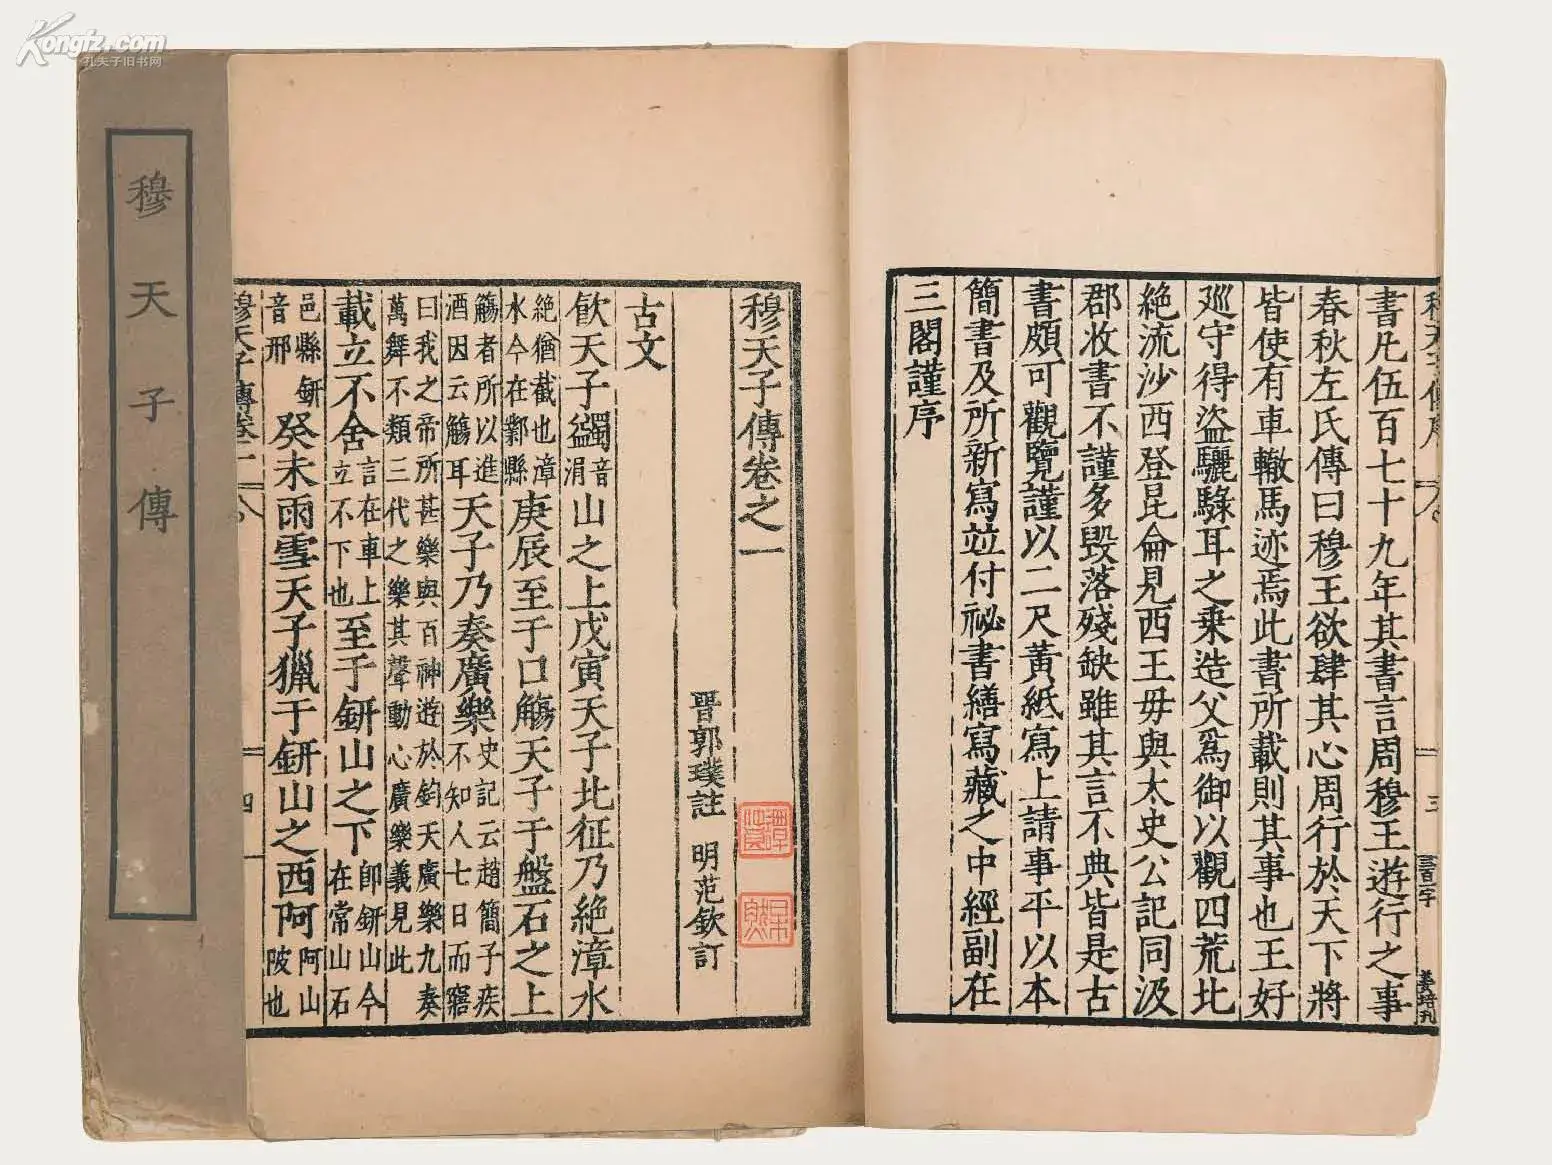 Kongfz.com
孔夫子旧书网
穆天子傳
書凡伍百七十九年其書言周穆王遊行之事
春秋左氏傳曰穆王欲肆其心周行於天下將
皆使有車轍馬迹焉此書所載則其事也王好
廵守得盜驪騄耳之乗造父為御以觀四荒北
絶流沙西登昆侖見西王母與太史公記同汲
郡收書不謹多毀落殘缺雖其言不典皆是古
書頗可觀覽謹以二尺黃紙寫上請事平以本
簡書及所新寫並付祕書繕寫藏之中經副在
三閣謹序
穆天子傳卷之一
晉郭璞註 明范欽訂
古文
飲天子蠲音涓山之上戊寅天子北征乃絶漳水
絶猶截也漳水今在鄴縣庚辰至于口觴天子于盤石之上
觴者所以進酒因云觴耳天子乃奏廣樂史記云趙簡子疾不知人七日而寤
曰我之帝所甚樂與百神遊於鈞天廣樂九奏萬舞不類三代之樂其聲動心廣樂義見此
載立不舍言在車上立不下也至于鈃山之下即鈃山今在常山石
邑縣鈃音邢癸未雨雪天子獵于鈃山之西阿阿山陂也
穆天子傳卷一
四